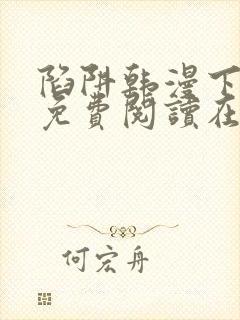 陷阱韩漫下
免費閱讀在
何宏舟